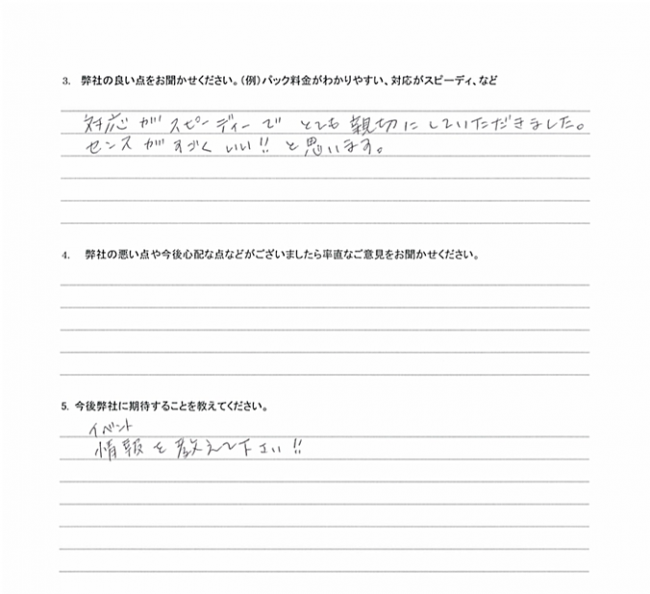 3. 弊社の良い点をお聞かせください。（例）パック料金がわかりやすい、対応がスピーディ、など
対応がスピーディーでとても親切にしていただきました。
センスがすごくいい!!と思います。
4. 弊社の悪い点や今後心配な点などがございましたら率直なご意見をお聞かせください。
5. 今後弊社に期待することを教えてください。
イベント
情報を教えて下さい!!